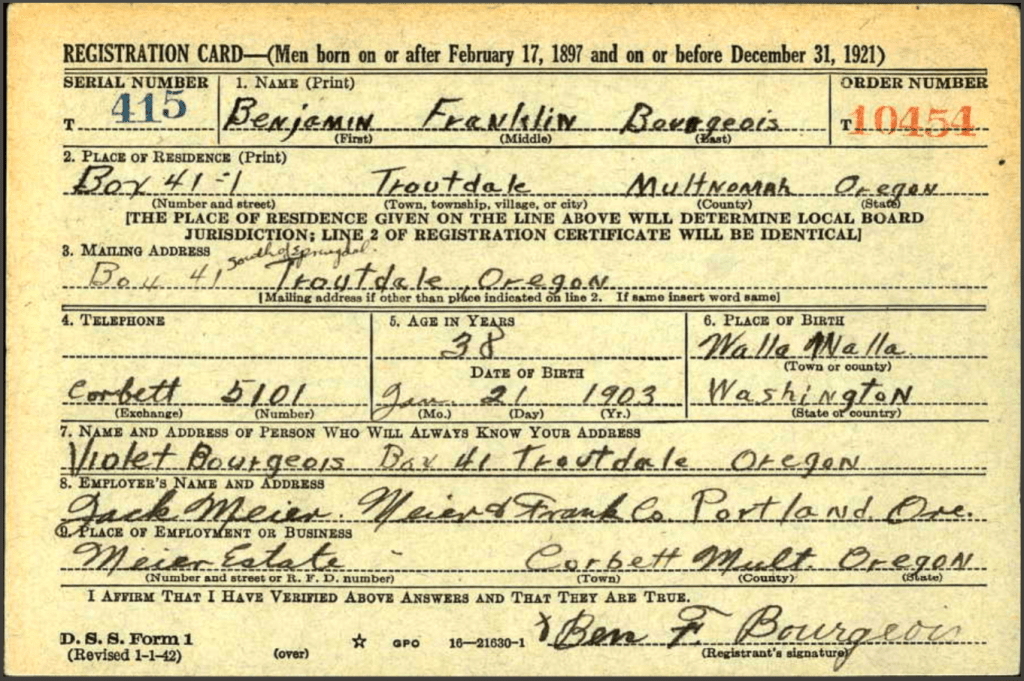 REGISTRATION CARD—(Men born on or after February 17, 1897 and on or before December 31, 1921)
SERIAL NUMBER 1. NAME (Print) ORDER NUMBER
T 415 Benjamin Franklin Bourgeois T 10454
(First) (Middle) (Last)
2. PLACE OF RESIDENCE (Print)
Box 41-1 Troutdale Multnomah Oregon
(Number and street) (Town, township, village, or city) (County) (State)
[THE PLACE OF RESIDENCE GIVEN ON THE LINE ABOVE WILL DETERMINE LOCAL BOARD
JURISDICTION; LINE 2 OF REGISTRATION CERTIFICATE WILL BE IDENTICAL]
3. MAILING ADDRESS
south of Springdale
Box 41 Troutdale, Oregon
[Mailing address if other than place indicated on line 2. If same insert word same]
4. TELEPHONE 5. AGE IN YEARS 6. PLACE OF BIRTH
38 Walla Walla
(Town or county)
DATE OF BIRTH
Corbett 5101 Jan. 21 1903 Washington
(Exchange) (Number) (Mo.) (Day) (Yr.) (State or country)
7. NAME AND ADDRESS OF PERSON WHO WILL ALWAYS KNOW YOUR ADDRESS
Violet Bourgeois Box 41 Troutdale Oregon
8. EMPLOYER'S NAME AND ADDRESS
Jack Meier. Meier & Frank Co. Portland Ore.
9. PLACE OF EMPLOYMENT OR BUSINESS
Meier Estate - Corbett Mult. Oregon
(Number and street or R. F. D. number) (Town) (County) (State)
I AFFIRM THAT I HAVE VERIFIED ABOVE ANSWERS AND THAT THEY ARE TRUE.
D. S. S. Form 1 X Ben F Bourgeois
(Revised 1-1-42) (over) ☆ GPO 16—21630-1 (Registrant's signature)